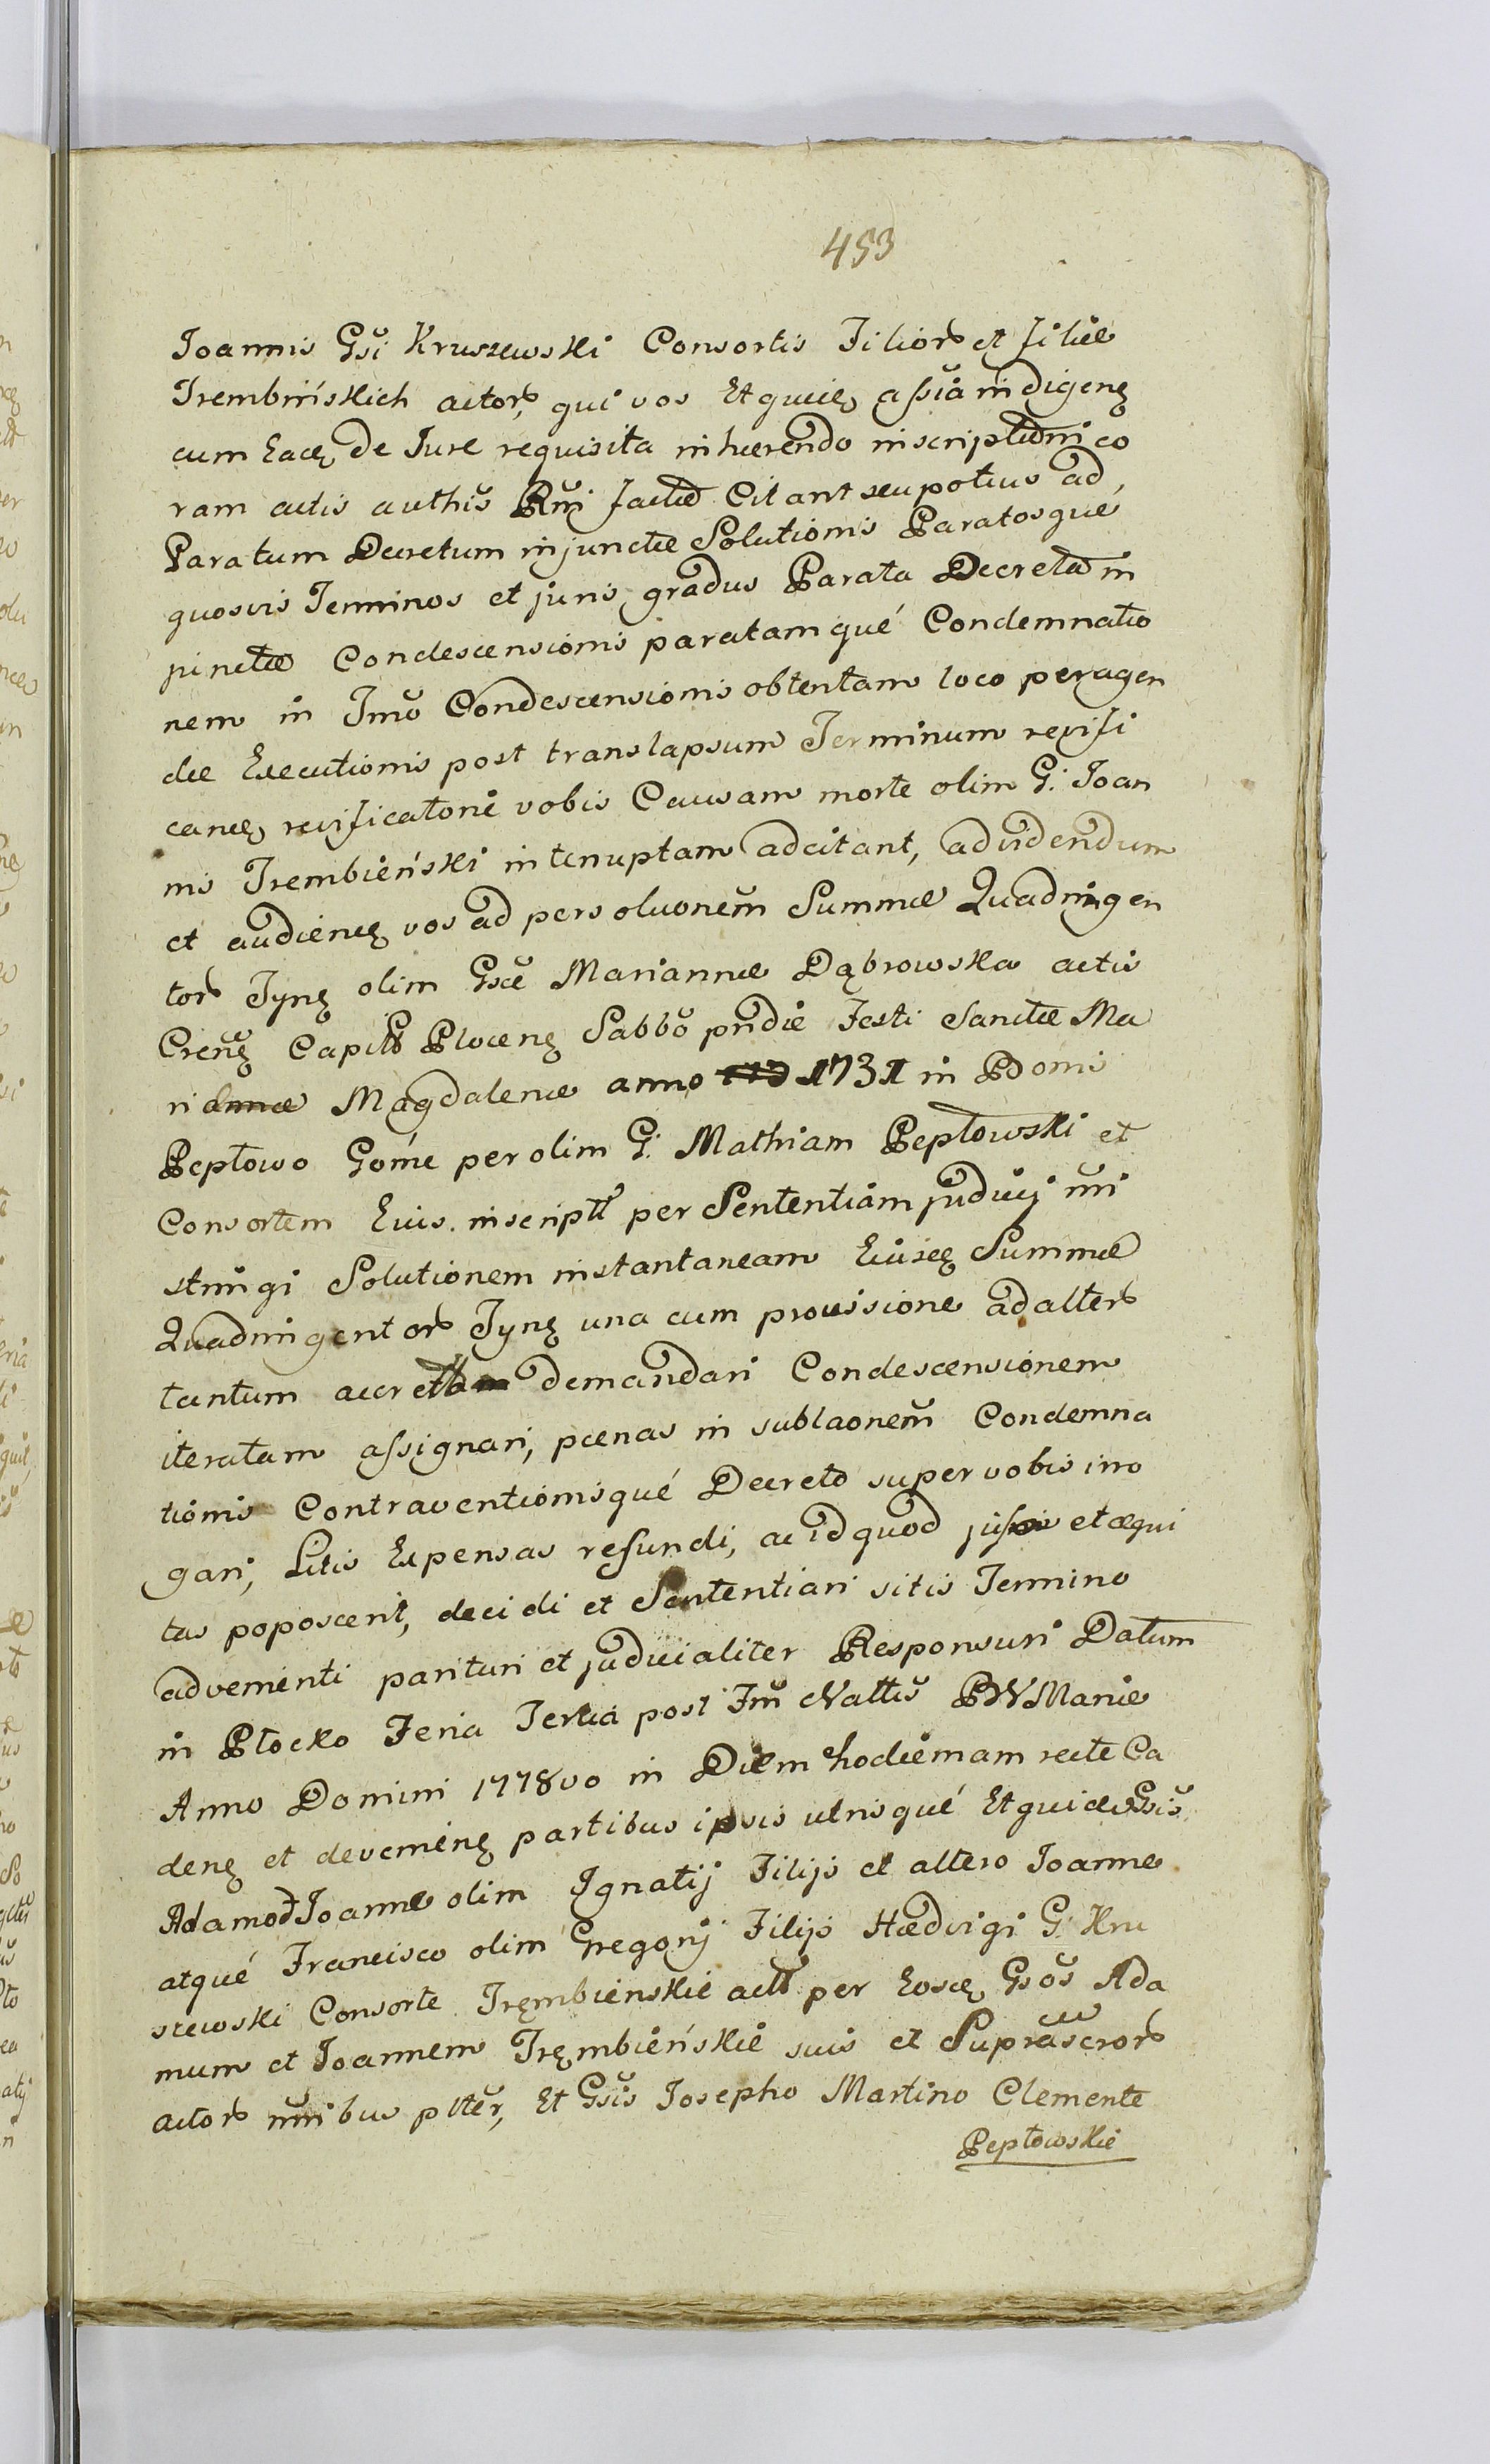 453
Joannis Gsi Kruszewski Consortis Filior et Filiæ
Trembińskich actor, qui vos Etquid, assia indigenę
cum Eade, de Jure requisita inhærendo inscriptioni co
ram actis authis Rni factæ Citant seu potius ad
Paratum Decretum injunctæ Solutionis Paratosque
quosvis Terminos et juris gradus Parata Decreta in
junctæ Condescensionis paratamqué Condemnatio
nem in Tmo Condescensionis obtentam loco peragen
dæ Executionis post translapsum Terminum reviſi
canđ, revificatone vobis Causam morte olim G. Joan
nis Trembieński interruptam adcitant, ad videndum
et audienđ vos ad persoluonem Summæ Quadringen
tor Tynf olim Gsæ Mariannæ Dąbrowska actis
Crenf Capitl Plocenf Sabbo pridie Festi Sanctæ Ma
riannæ Magdalenæ anno 1731 in Bonis
Peptowo Gome per olim G. Mathiam Peptowski et
Consortem Eius. inscript per Sententiam judicij nri
stringi Solutionem instantaneam Eiusđ Summæ
Quadringentor Tynf una cum provisione ad alter
tantum accret demandari Condescensionem
iteratam assignari, pænas in sublaonem Condemna
tionis Contraventionisqué Decreto super vobis irro
gari, Litis Expensas refundi, ac id quod jus et æqui
tas poposcerit, decidi et Sententiari sitis Termino
advenienti parituri et judicialiter Responsuri Datum
in Płocko Feria Tertia post Fm Nattis BV Mariæ
Anno Domini 1778vo in Diem hodiernam recte Ca
denf et devenienf partibus ipsis utrisqué Etquidem Gsis
Adamo Joanne olim Ignatij Filijs et altero Joanne
atqué Francisco olim Gregorij Filijs Hædvigi G. Kru
szewski Consorte Tręmbienskie actt per Eosđ Gsos Ada
mum et Joannem Tręmbieńskie suis et Suprascror
actor nnibus ptter, Et Gsis Josepho Martino Clemente
Peptowskie